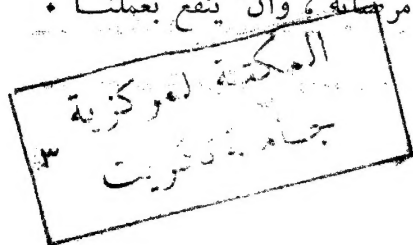 مرضاته ، وان ينفع بعملنا .
المكتبة المركزية
جامعة تكريت
٣